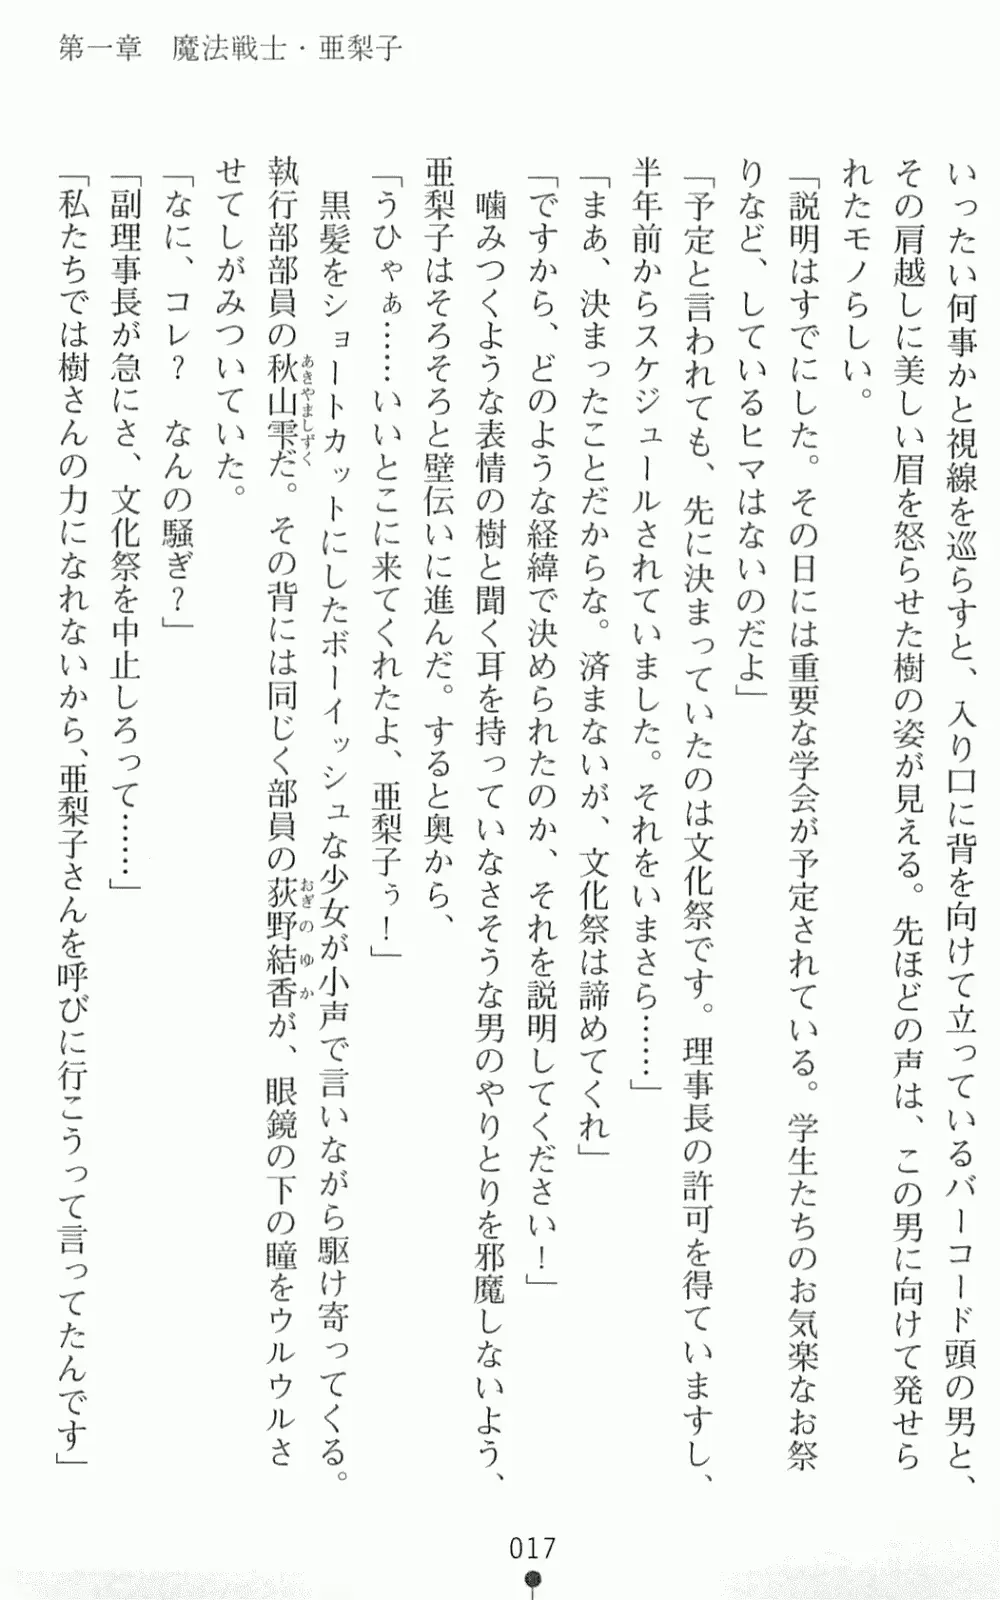 第一章　魔法戦士・亜梨子
いったい何事かと視線を巡らすと、入り口に背を向けて立っているバーコード頭の男と、
その肩越しに美しい眉を怒らせた樹の姿が見える。先ほどの声は、この男に向けて発せら
れたモノらしい。
「説明はすでにした。その日には重要な学会が予定されている。学生たちのお気楽なお祭
りなど、しているヒマはないのだよ」
「予定と言われても、先に決まっていたのは文化祭です。理事長の許可を得ていますし、
半年前からスケジュールされていました。それをいまさら……」
「まあ、決まったことだからな。済まないが、文化祭は諦めてくれ」
「ですから、どのような経緯で決められたのか、それを説明してください！」
　噛みつくような表情の樹と聞く耳を持っていなさそうな男のやりとりを邪魔しないよう、
亜梨子はそろそろと壁伝いに進んだ。すると奥から、
「うひゃぁ……いいとこに来てくれたよ、亜梨子ぅ！」
　黒髪をショートカットにしたボーイッシュな少女が小声で言いながら駆け寄ってくる。
執行部部員の秋山雫だ。その背には同じく部員の荻野結香が、眼鏡の下の瞳をウルウルさ
あきやましずく
おぎのゆか
せてしがみついていた。
「なに、コレ？　なんの騒ぎ？」
「副理事長が急にさ、文化祭を中止しろって……」
「私たちでは樹さんの力になれないから、亜梨子さんを呼びに行こうって言ってたんです」
017